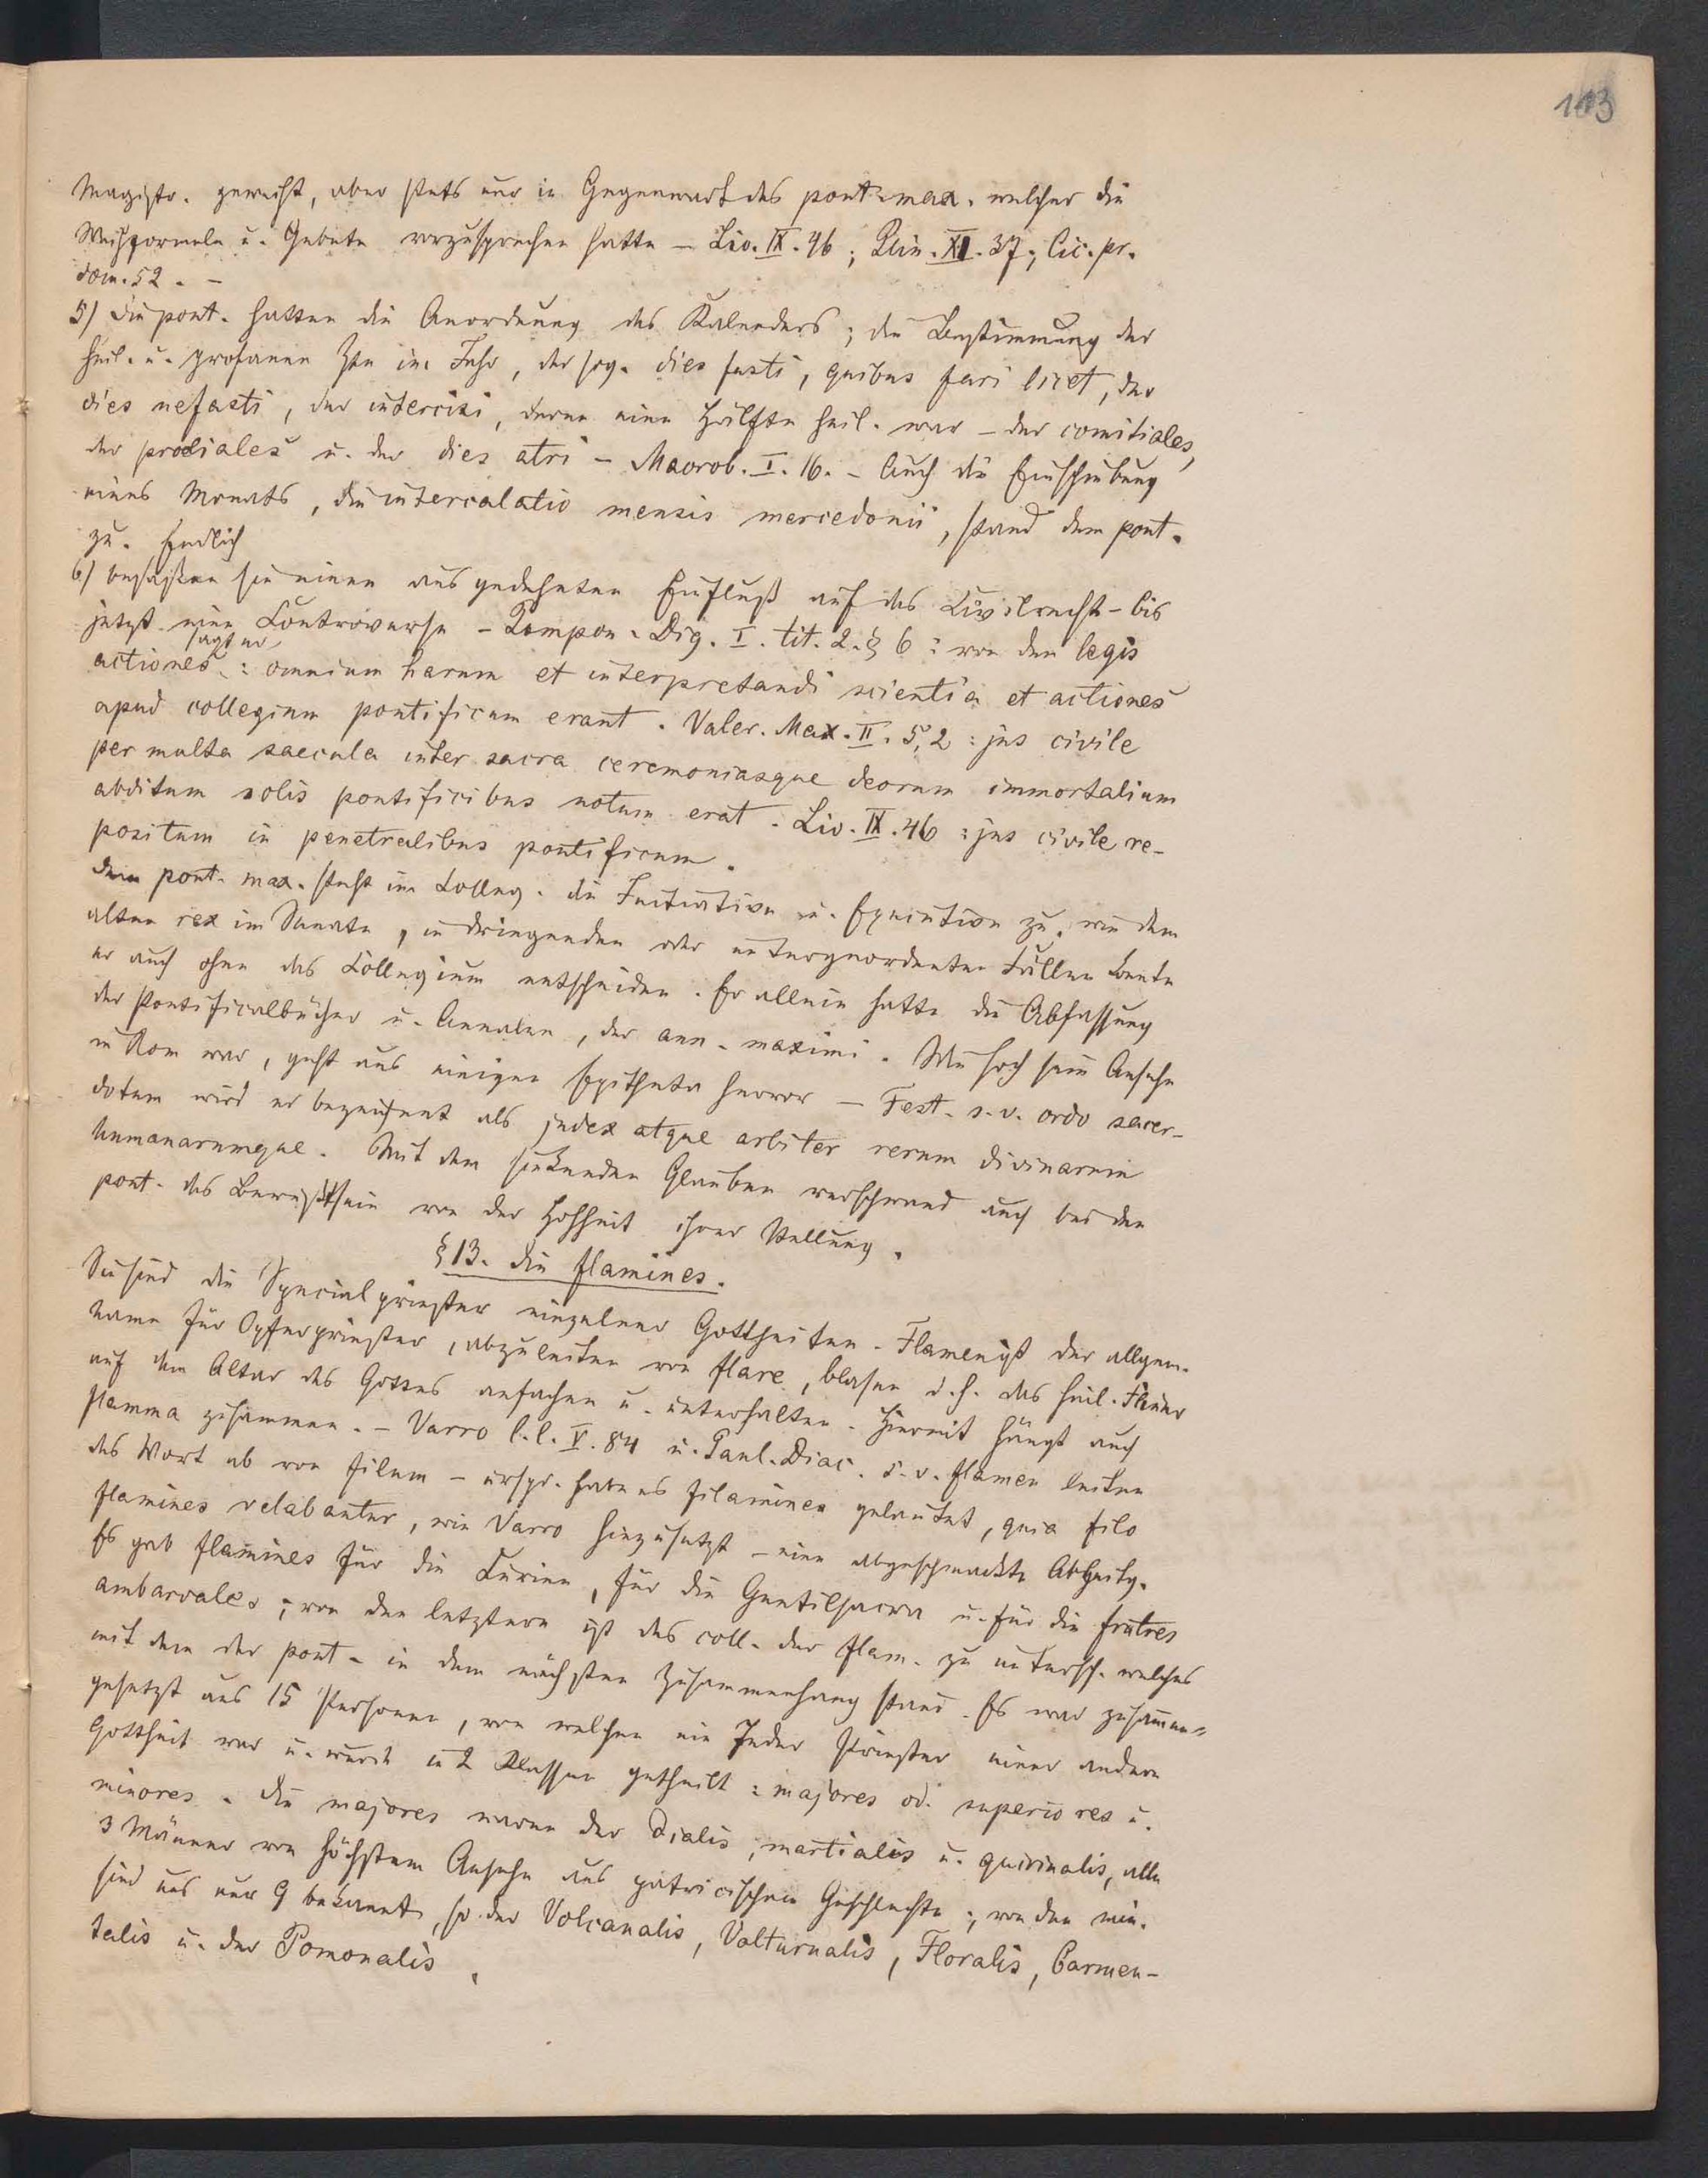 103
Magistr. geweiht, aber stets nur in Gegenwart des pont. max. welcher die
Weihformeln u. Gebete vorzusprechen hatte – Liv. IX. 46; Plin. XI. 37; Cic. pr.
dom. 52. –
5) Die pont. hatten die Anordnung des Kalenders; die Bestimmung der
heil. u. profanen Ztn im Jahr, der sog. dies fasti, quibus fari licet, der
dies nefasti, der intercisi, deren eine Hälfte heil. war – der comitiales,
der proeliales u. der dies atri – Macrob. I. 16. – Auch die Einschiebung
eines Monats, die intercalatio mensis mercedonii, stand dem pont.
zu. Endlich
6) besaßen sie einen ausgedehnten Einfluß auf das Civilrecht – bis
jetzt eine Controverse – Pompon. Dig. I. tit. 2. § 6: von den legis
actiones sagt er: omnium harum et interpretandi scientia et actiones
apud collegium pontificum erant. Valer. Max. II. 5, 2: jus civile
per multa saecula inter sacra ceremoniasque deorum immortalium
abditum solis pontificibus notum erat. Liv. IX. 46: jus civile re-
positum in penetralibus pontificum.
Dem pont. max. steht im Colleg. die Initiative u. Execution zu, wie dem
alten rex im Senate, in dringenden oder untergeordneten Fällen konnte
er auch ohne das Collegium entscheiden. Er allein hatte die Abfassung
der Pontificalbücher u. Annalen, der ann. maximi. Wie hoch sein Ansehn
in Rom war, geht aus einigen Epitheta hervor – Fest. s. v. ordo sacer-
dotum wird er bezeichnet als judex atque arbiter rerum divinarum
humanarumque. Mit dem sinkenden Glauben verschwand auch bei den
pont. das Bewußtsein von der Hoheit ihrer Stellung.
§ 13. die flamines.
Sie sind die Specialpriester einzelner Gottheiten. Flamen ist der allgem.
Name für Opferpriester, abzuleiten von flare, blasen d. h. das heil. Feuer
auf dem Altar des Gottes anfachen u. unterhalten. Hiermit hängt auch
flamma zusammen. – Varro l. l. V. 84 u. Paul. Diac. s. v. flamen leiten
das Wort ab von filum – urspr. habe es filamines gelautet, quia filo
flamines velabantur, wie Varro hinzusetzt – eine abgeschmackte Ableitg.
Es gab flamines für die Curien, für die Gentilsacra u. für die fratres
ambarvales; von den letztern ist das coll. der flam. zu untersch. welches
mit dem der pont. in dem nächsten Zusammenhang stand. Es war zusammen-
gesetzt aus 15 Personen, von welchen ein Jeder Priester einer andern
Gottheit war u. wurde in 2 Klassen getheilt: majores od. superiores u.
minores. Die majores waren der Dialis, martialis u. quirinalis, alle
3 Männer von höchstem Ansehn aus patricischem Geschlechte; von den min.
sind uns nur 9 bekannt, so der Volcanalis, Volturnalis, Floralis, Carmen-
talis u. der Pomonalis.